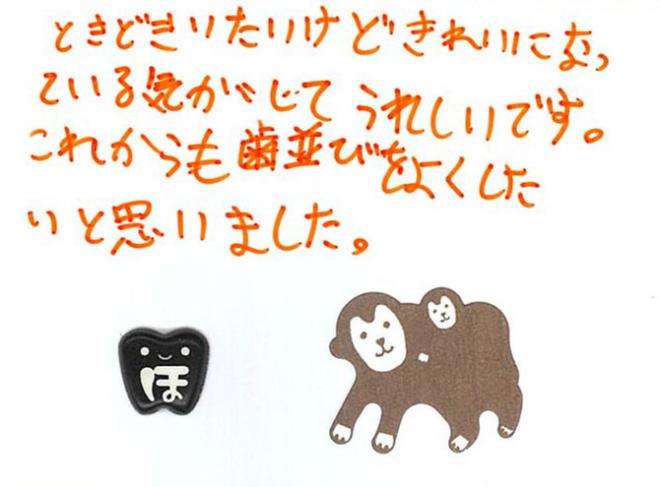 ときどきいたいけどきれいになっ
ている気がじてうれしいです。
これからも歯並びをよくした
いと思いました。
ほ